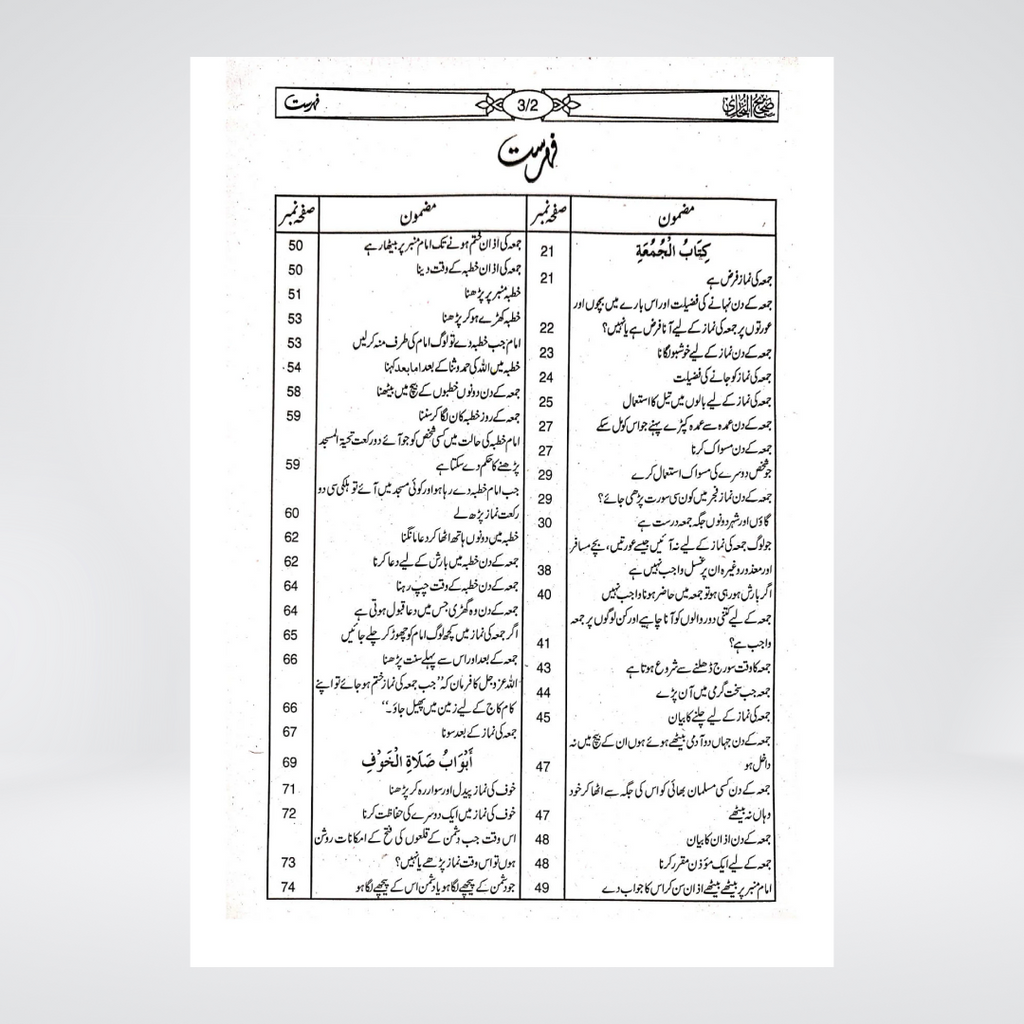 صحیح البخاری
3/2
فہرست
فہرست
مضمون
صفحہ نمبر
کِتَابُ الْجُمُعَةِ 21
جمعہ کی نماز فرض ہے 21
جمعہ کے دن نہانے کی فضیلت اور اس بارے میں بچوں اور
عورتوں پر جمعہ کی نماز کے لیے آنا فرض ہے یا نہیں؟ 22
جمعہ کے دن نماز کے لیے خوشبو لگانا 23
جمعہ کی نماز کو جانے کی فضیلت 24
جمعہ کی نماز کے لیے بالوں میں تیل کا استعمال 25
جمعہ کے دن عمدہ سے عمدہ کپڑے پہنے جو اس کو مل سکے 27
جمعہ کے دن مسواک کرنا 27
جو شخص دوسرے کی مسواک استعمال کرے 29
جمعہ کے دن نماز فجر میں کون سی سورت پڑھی جائے؟ 29
گاؤں اور شہر دونوں جگہ جمعہ درست ہے 30
جو لوگ جمعہ کی نماز کے لیے نہ آئیں جیسے عورتیں، بچے مسافر
اور معذور وغیرہ ان پر غسل واجب نہیں ہے 38
اگر بارش ہو رہی ہو تو جمعہ میں حاضر ہونا واجب نہیں 40
جمعہ کے لیے کتنی دور والوں کو آنا چاہیے اور کن لوگوں پر جمعہ
واجب ہے؟ 41
جمعہ کا وقت سورج ڈھلنے سے شروع ہوتا ہے 43
جمعہ جب سخت گرمی میں آن پڑے 44
جمعہ کی نماز کے لیے چلنے کا بیان 45
جمعہ کے دن جہاں دو آدمی بیٹھے ہوئے ہوں ان کے بیچ میں نہ
داخل ہو 47
جمعہ کے دن کسی مسلمان بھائی کو اس کی جگہ سے اٹھا کر خود
وہاں نہ بیٹھے 47
جمعہ کے دن اذان کا بیان 48
جمعہ کے لیے ایک مؤذن مقرر کرنا 48
امام منبر پر بیٹھے بیٹھے اذان سن کر اس کا جواب دے 49
مضمون
صفحہ نمبر
جمعہ کی اذان ختم ہونے تک امام منبر پر بیٹھا رہے 50
جمعہ کی اذان خطبہ کے وقت دینا 50
خطبہ منبر پر پڑھنا 51
خطبہ کھڑے ہو کر پڑھنا 53
امام جب خطبہ دے تو لوگ امام کی طرف منہ کر لیں 53
خطبہ میں اللہ کی حمد و ثنا کے بعد اما بعد کہنا 54
جمعہ کے دن دونوں خطبوں کے بیچ میں بیٹھنا 58
جمعہ کے روز خطبہ کان لگا کر سننا 59
امام خطبہ کی حالت میں کسی شخص کو جو آئے دو رکعت تحیۃ المسجد
پڑھنے کا حکم دے سکتا ہے 59
جب امام خطبہ دے رہا ہو اور کوئی مسجد میں آئے تو ہلکی سی دو
رکعت نماز پڑھ لے 60
خطبہ میں دونوں ہاتھ اٹھا کر دعا مانگنا 62
جمعہ کے دن خطبہ میں بارش کے لیے دعا کرنا 62
جمعہ کے دن خطبہ کے وقت چپ رہنا 64
جمعہ کے دن وہ گھڑی جس میں دعا قبول ہوتی ہے 64
اگر جمعہ کی نماز میں کچھ لوگ امام کو چھوڑ کر چلے جائیں 65
جمعہ کے بعد اور اس سے پہلے سنت پڑھنا 66
اللہ عزوجل کا فرمان کہ ”جب جمعہ کی نماز ختم ہو جائے تو اپنے
کام کاج کے لیے زمین میں پھیل جاؤ۔“ 66
جمعہ کی نماز کے بعد سونا 67
أَبْوَابُ صَلَاةِ الْخَوْفِ 69
خوف کی نماز پیدل اور سوار رہ کر پڑھنا 71
خوف کی نماز میں ایک دوسرے کی حفاظت کرنا 72
اس وقت جب دشمن کے قلعوں کی فتح کے امکانات روشن
ہوں تو اس وقت نماز پڑھے یا نہیں؟ 73
جو دشمن کے پیچھے لگا ہو یا دشمن اس کے پیچھے لگا ہو 74